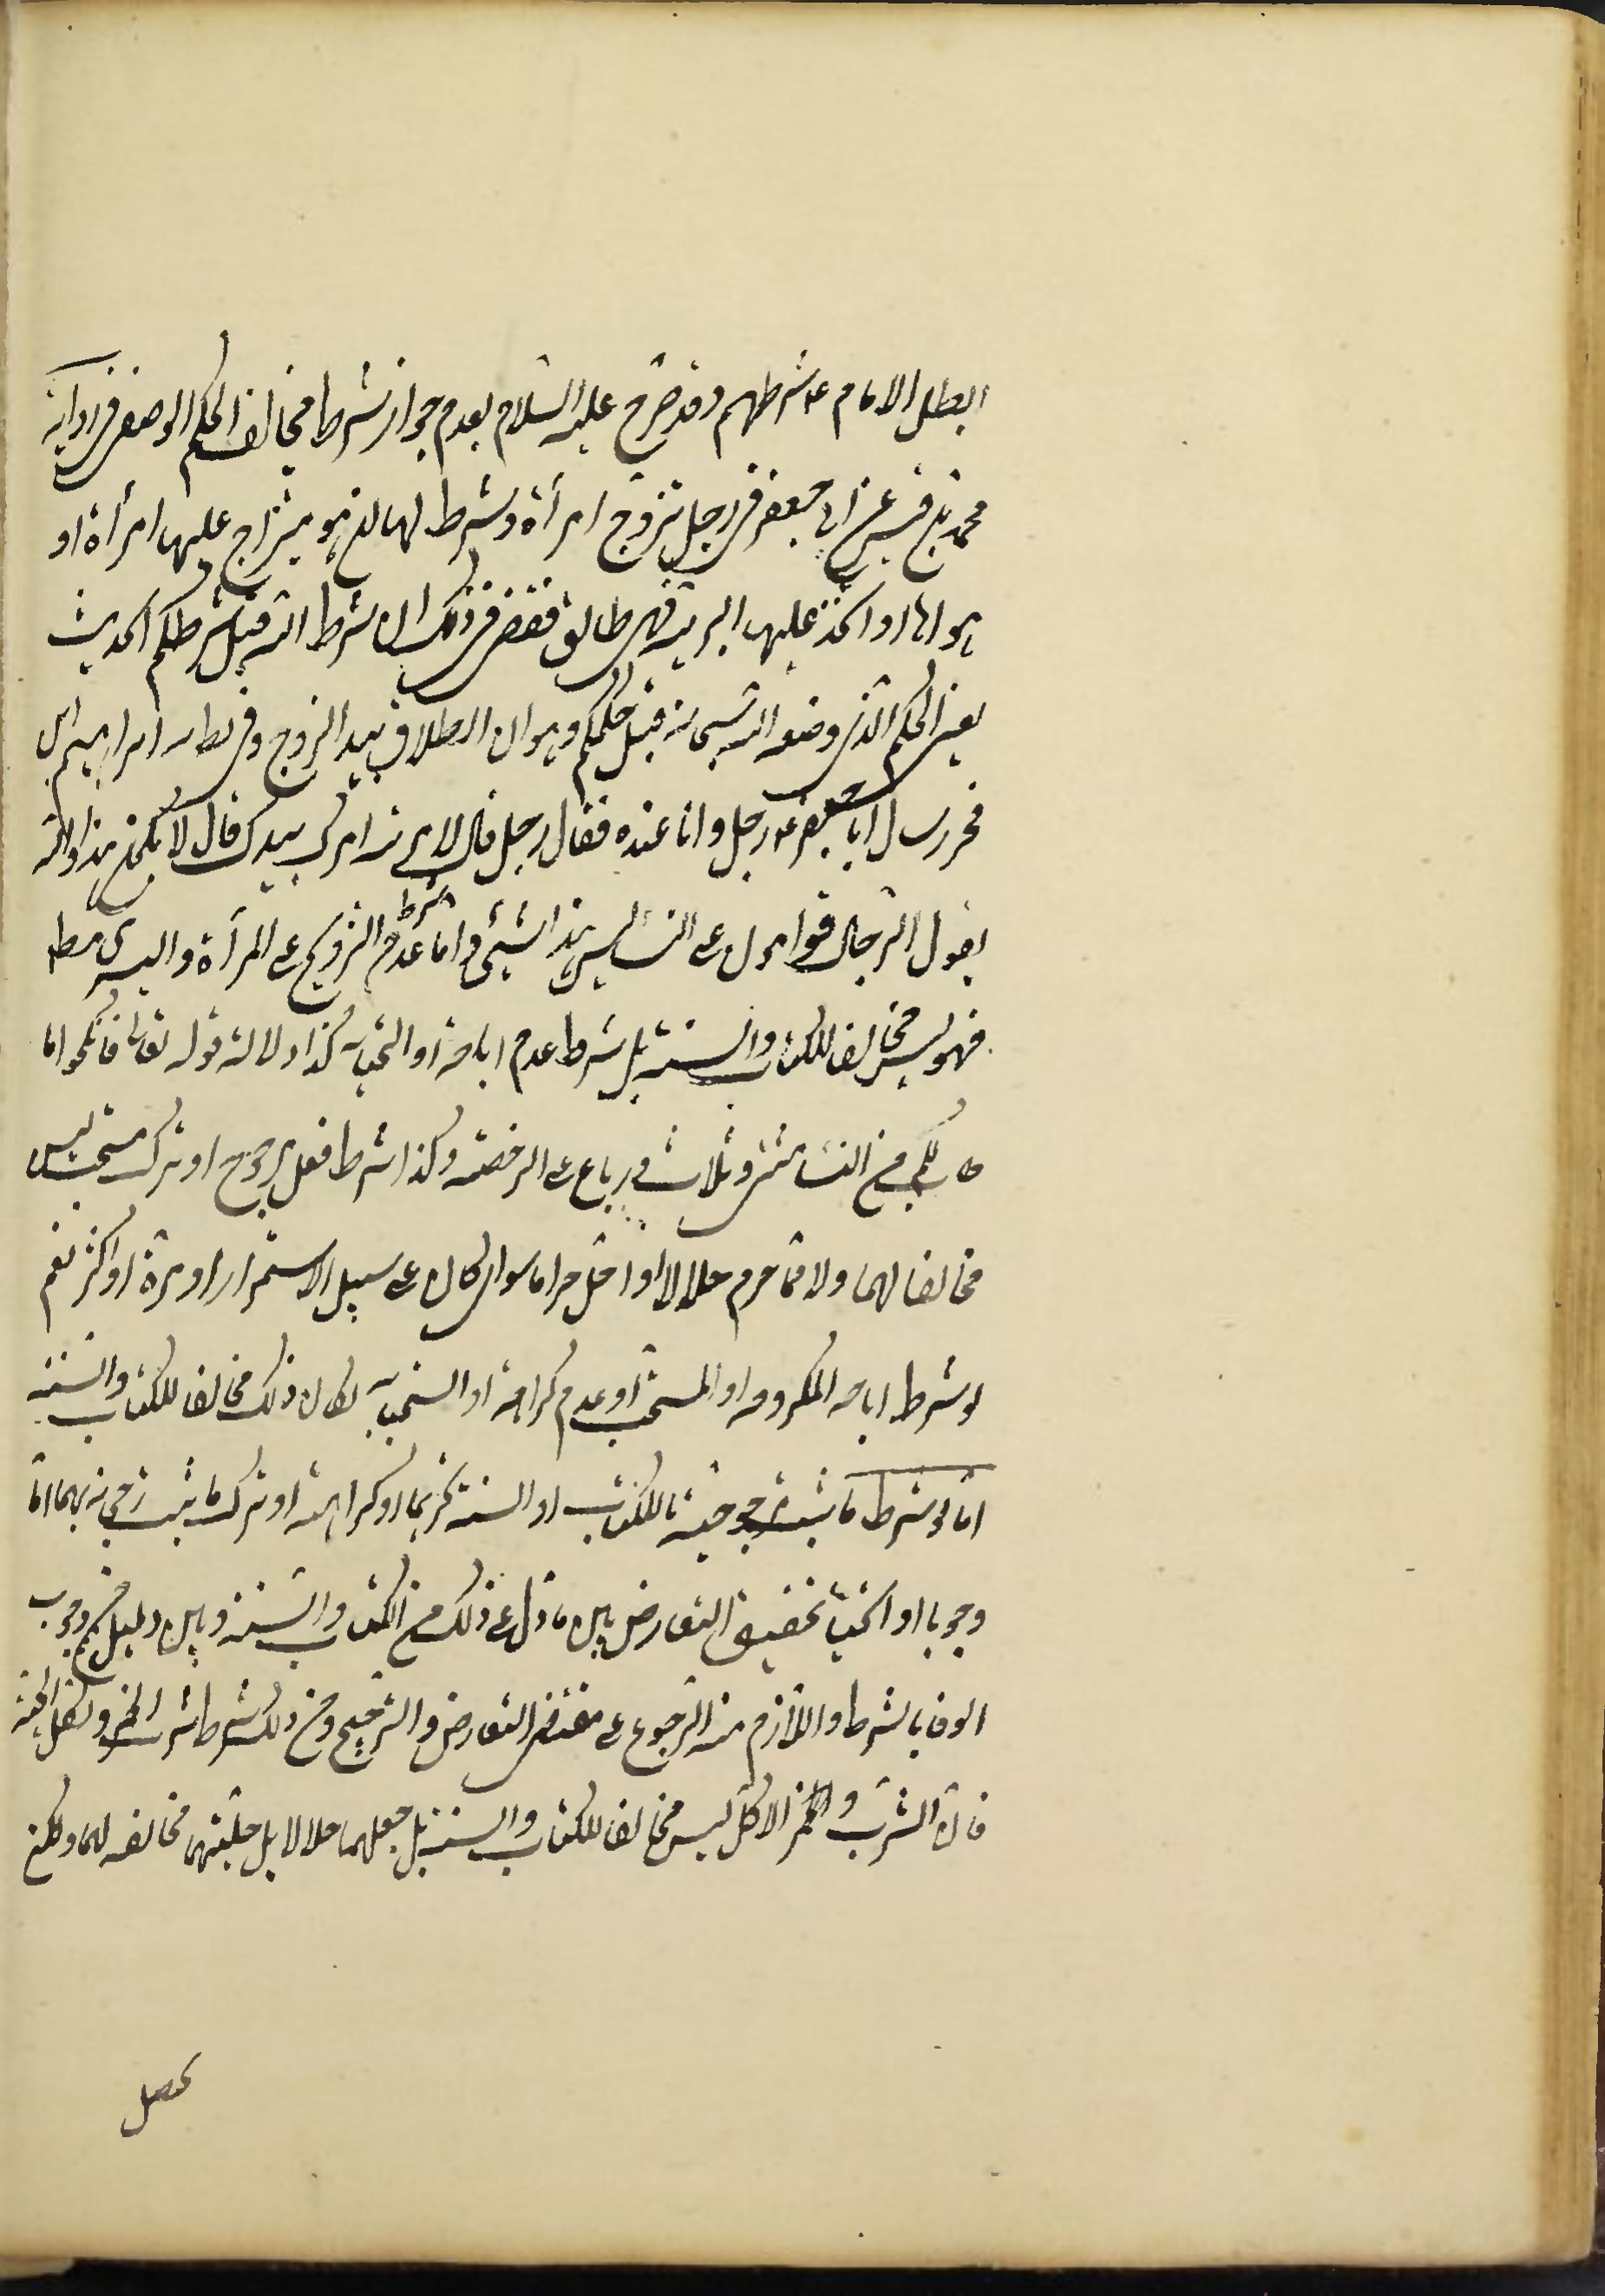 ابطل الامام ع شرطهم وقد صرح عليه السلام بعدم جواز شرط مخالف الحكم الوضعى فى رواية
محمد بن قيس عن ابى جعفر فى رجل تزوج امرأة وشرط لها ان هو يتزوج عليها امرأة او
هواها او اتخذ عليها السرية فهى طالق فقضى فى ذلك ان شرط الله قبل شرطكم الحديث
يعنى الحكم الذى وضعه الله سبحانه قبل حكمكم وهو ان الطلاق بيد الزوج وفى رواية ابراهيم بن
محرز سال ابا جعفر ع رجل وانا عنده فقال رجل قال لامرته امرك بيدك قال لا يكون هذا والله
يقول الرجال قوامون على النساء ليس هذا بشىء واما شرط عدم التزويج على المرأة والتسرى مط
فهو ليس مخالفا للكتاب والسنة بل شرط عدم اباحة او استحبابه كذا دلالة قوله تعالى فانكحوا ما
طاب لكم من النساء مثنى وثلاث ورباع على الرخصة وكذا شرط فعل مرجوح او ترك مستحب ليس
مخالفا لهما ولا مما حرم حلالا او احل حراما سواء كان على سبيل الاستمرار او مرة او اكثر نعم
لو شرط اباحة المكروه او المستحب او عدم كراهة او استحبابه لكان ذلك مخالفا للكتاب والسنة
اما لو شرط ما يثبت مرجوحيته بالكتاب او السنة تحريما او كراهة او ترك ما ثبت رجحانه بهما اما
وجوبا او استحبابا تحقيق التعارض بين ما دل على ذلك من الكتاب والسنة وبين دليل وجوب
الوفا بالشرط واللازم منه الرجوع على مقتضى التعارض والترجيح ومن ذلك شرط شرب الخمر واكل الميتة
فان الشرب و الاكل ليس مخالفا للكتاب والسنة بل جعلهما حلالا بل حليتهما مخالفة لهما ولكن
يحصل